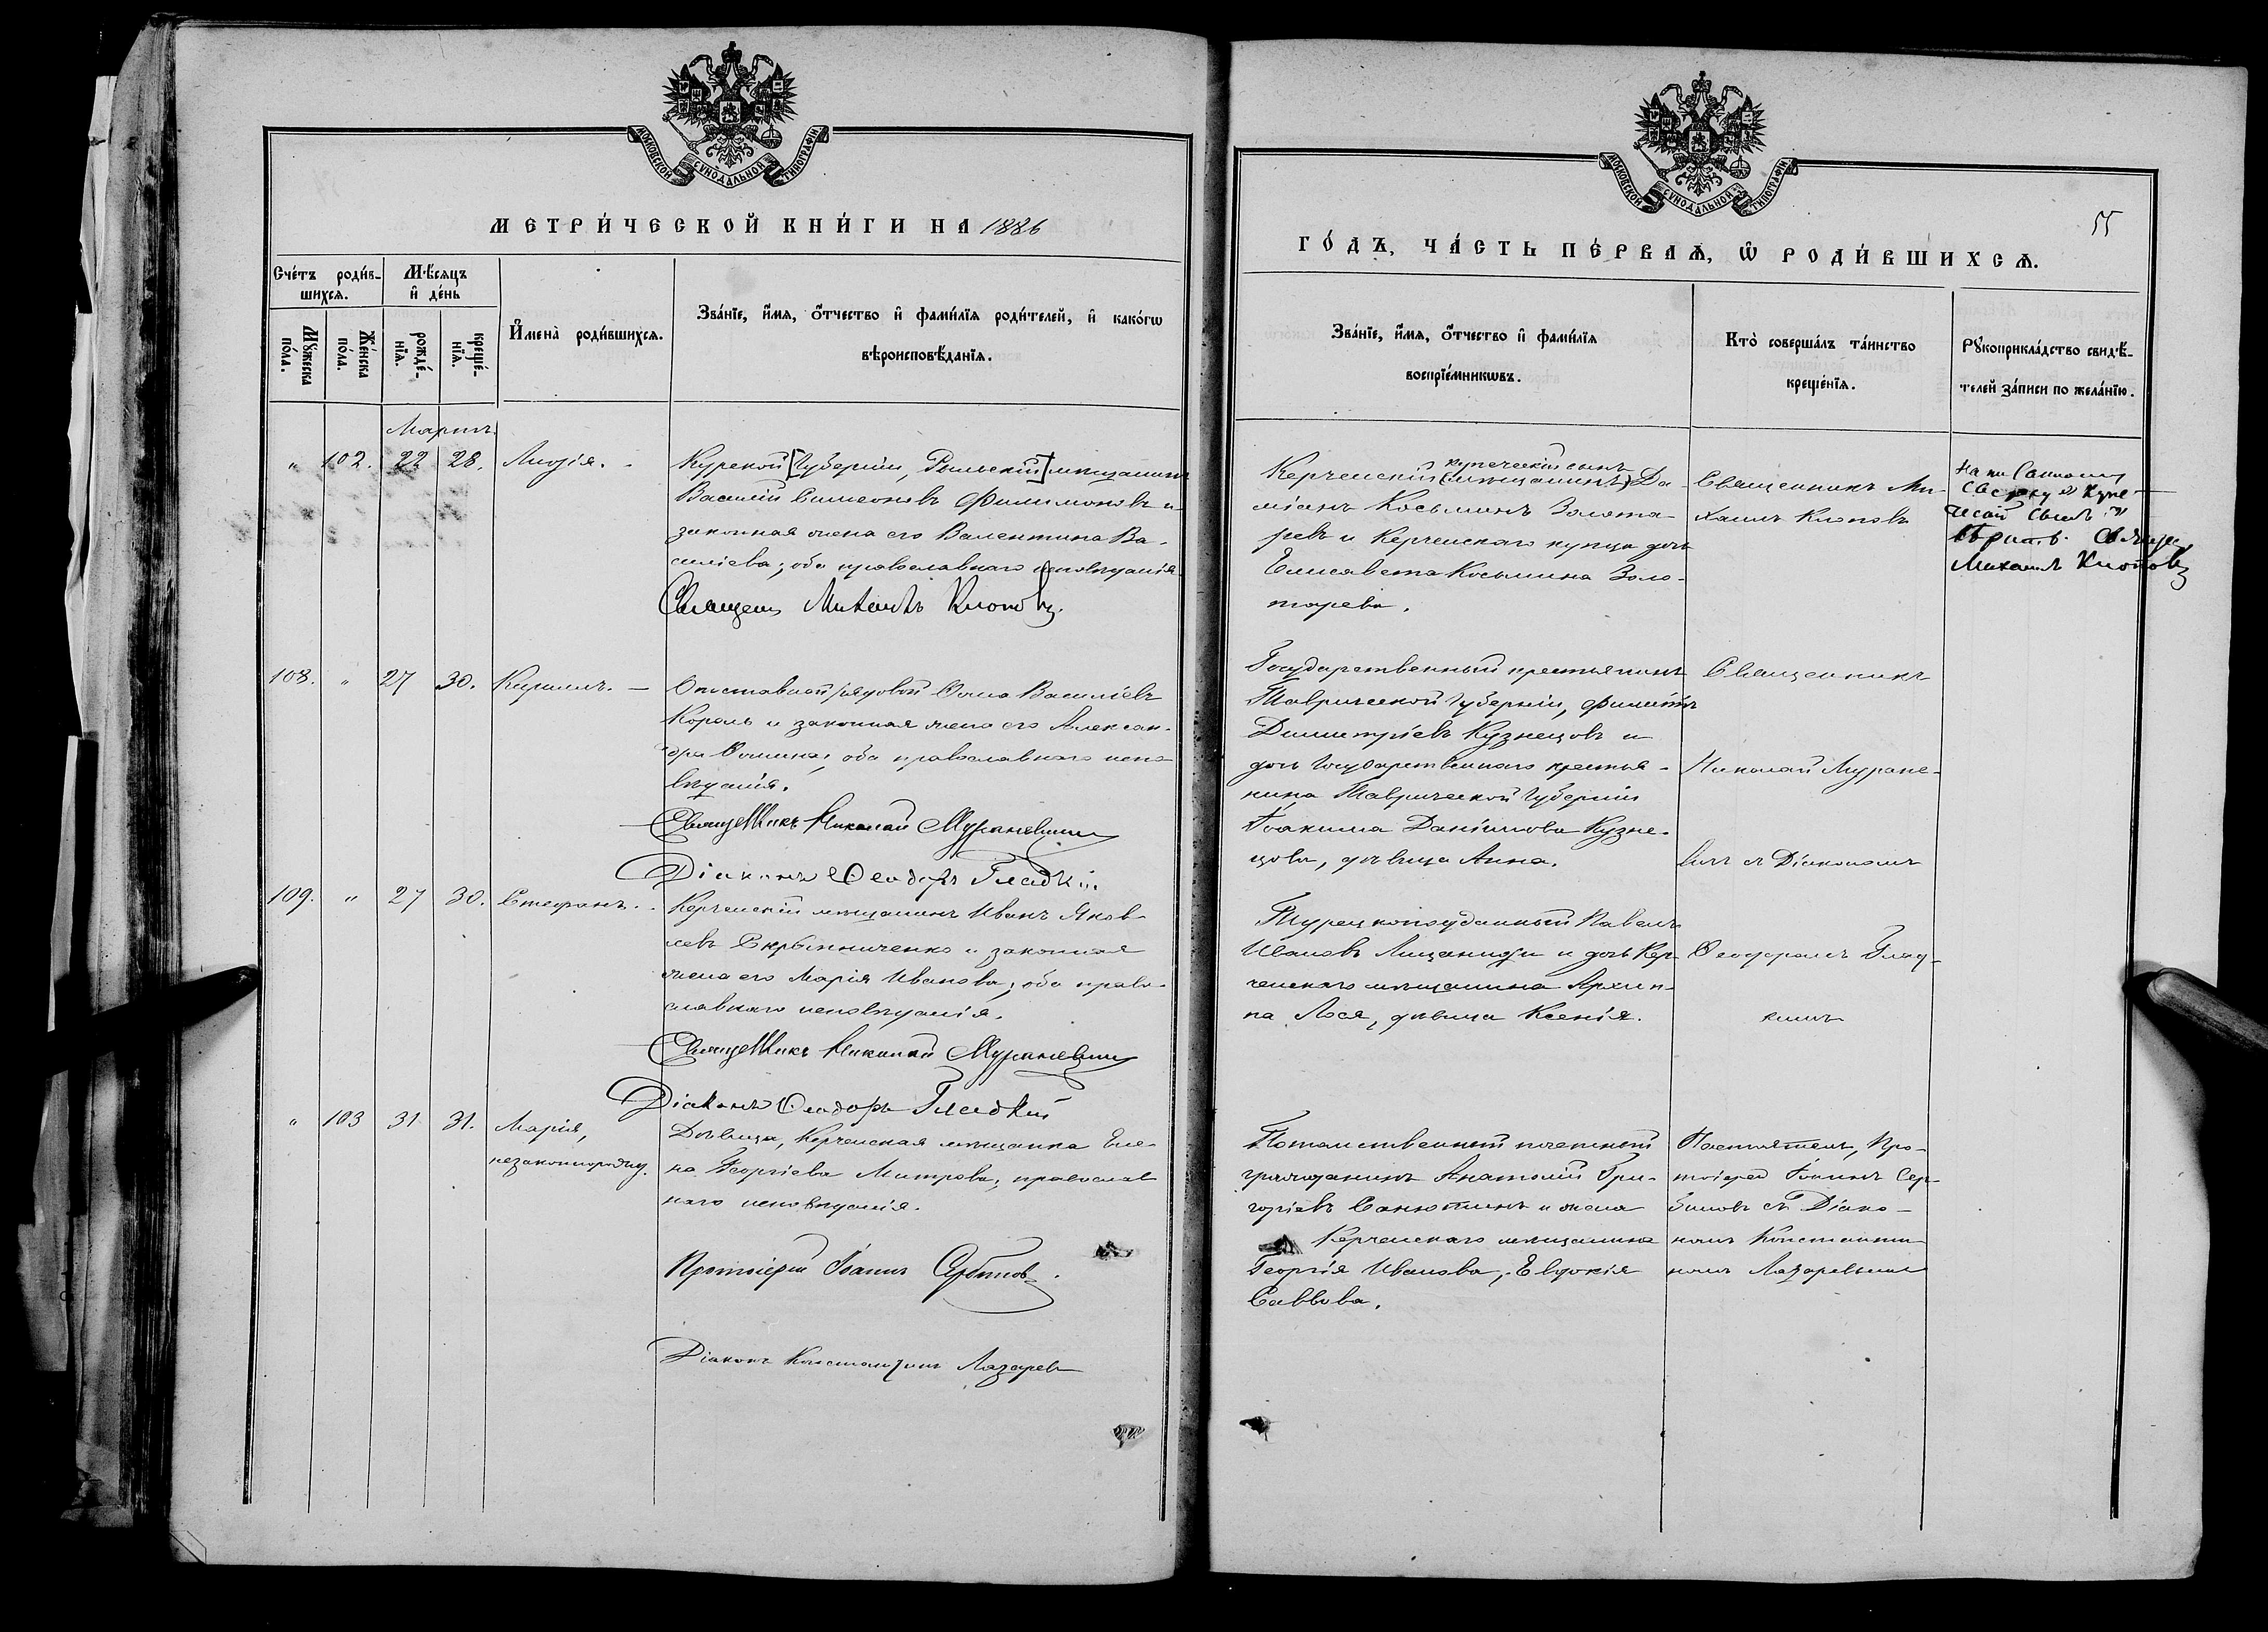 МОСКОВСКОЙ СѴНОДАЛЬНОЙ ТИПОГРАФІИ
МЕТРИ́ЧЕСКОЙ КНИ́ГИ НА 1886
Сче́тъ роди́в-
шихсѧ.
Мѣ́сѧцъ
и҆ де́нь
Мꙋ́жеска по́ла.
Же́нска по́ла.
рожде́-
нїѧ.
креще́-
нїѧ.
И҆мена̀ роди́вшихсѧ.
Зва́нїе, и҆́мѧ, ѻ҆́тчество и҆ фами́лїѧ роди́телей, и҆ како́гѡ
вѣроисповѣ́данїѧ.
Мартъ.
" 102. 22 28. Лидія.
Курской [Губерніи, Рыльскій] мѣщанинъ
Василій Симеоновъ Филимоновъ и
законная жена его Валентина Ва-
силіева; оба православнаго исповѣданія.
Священ. Михаилъ Клоповъ.
108. " 27 30. Кириллъ. —
Отставной рядовой Ѳома Василіевъ
Король и законная жена его Алексан-
дра Ѳомина, оба православнаго испо-
вѣданія.
Священникъ Николай Мураневичъ
Діаконъ Ѳеодоръ Гладкій.
109. " 27 30. Стефанъ.
Керченскій мѣщанинъ Иванъ Яков-
левъ Скрынниченко и законная
жена его Марія Иванова; оба право-
славнаго исповѣданія.
Священникъ Николай Мураневичъ
Діаконъ Ѳеодоръ Гладкій
" 103 31 31. Марія,
незаконнорожд.
Дѣвица, Керченская мѣщанка Еле-
на Георгіева Митрова; православ
наго исповѣданія.
Протоіерей Іоаннъ Сербиновъ.
Діаконъ Константинъ Лазаревъ
МОСКОВСКОЙ СѴНОДАЛЬНОЙ ТИПОГРАФІИ
55
ГО́ДЪ, ЧА́СТЬ ПЕ́РВАѦ, Ѡ҆ РОДИ́ВШИХСѦ.
Зва́нїе, и҆́мѧ, ѻ҆́тчество и҆ фами́лїѧ
воспрїе́мникѡвъ.
Кто̀ соверша́лъ та́инство
креще́нїѧ.
Рꙋкоприкла́дство свидѣ́-
телей за́писи по жела́нїю.
купеческій сынъ
Керченскій (мѣщанинъ) Да-
міанъ Косьминъ Золота-
ревъ и Керченскаго купца дочь
Елисавета Косьмина Золо-
тарева.
Священникъ Ми-
хаилъ Клоповъ
сверху
сынъ
вѣрить. Священ.
Михаилъ Клоповъ
Государственный крестьянинъ
Таврической Губерніи, Филиппъ
Димитріевъ Кузнецовъ и
дочь Государственнаго крестья-
нина Таврической Губерніи
Іоакима Даніилова Кузне-
цова, дѣвица Анна.
Священникъ
Николай Муране-
вичъ съ Діакономъ
Турецкоподданный Павелъ
Ивановъ и дочь Кер-
ченскаго мѣщанина Архип-
па Лося, дѣвица Ксенія.
Ѳеодоромъ Глад-
кимъ
Потомственный почетный
гражданинъ Анатолій Гри-
горіевъ Санютинъ и жена
Керченскаго мѣщанина
Георгія Иванова, Евдокія
Саввова.
Настоятель, Про-
тоіерей Іоаннъ Сер-
биновъ съ Діако-
номъ Константи
номъ Лазаревымъ